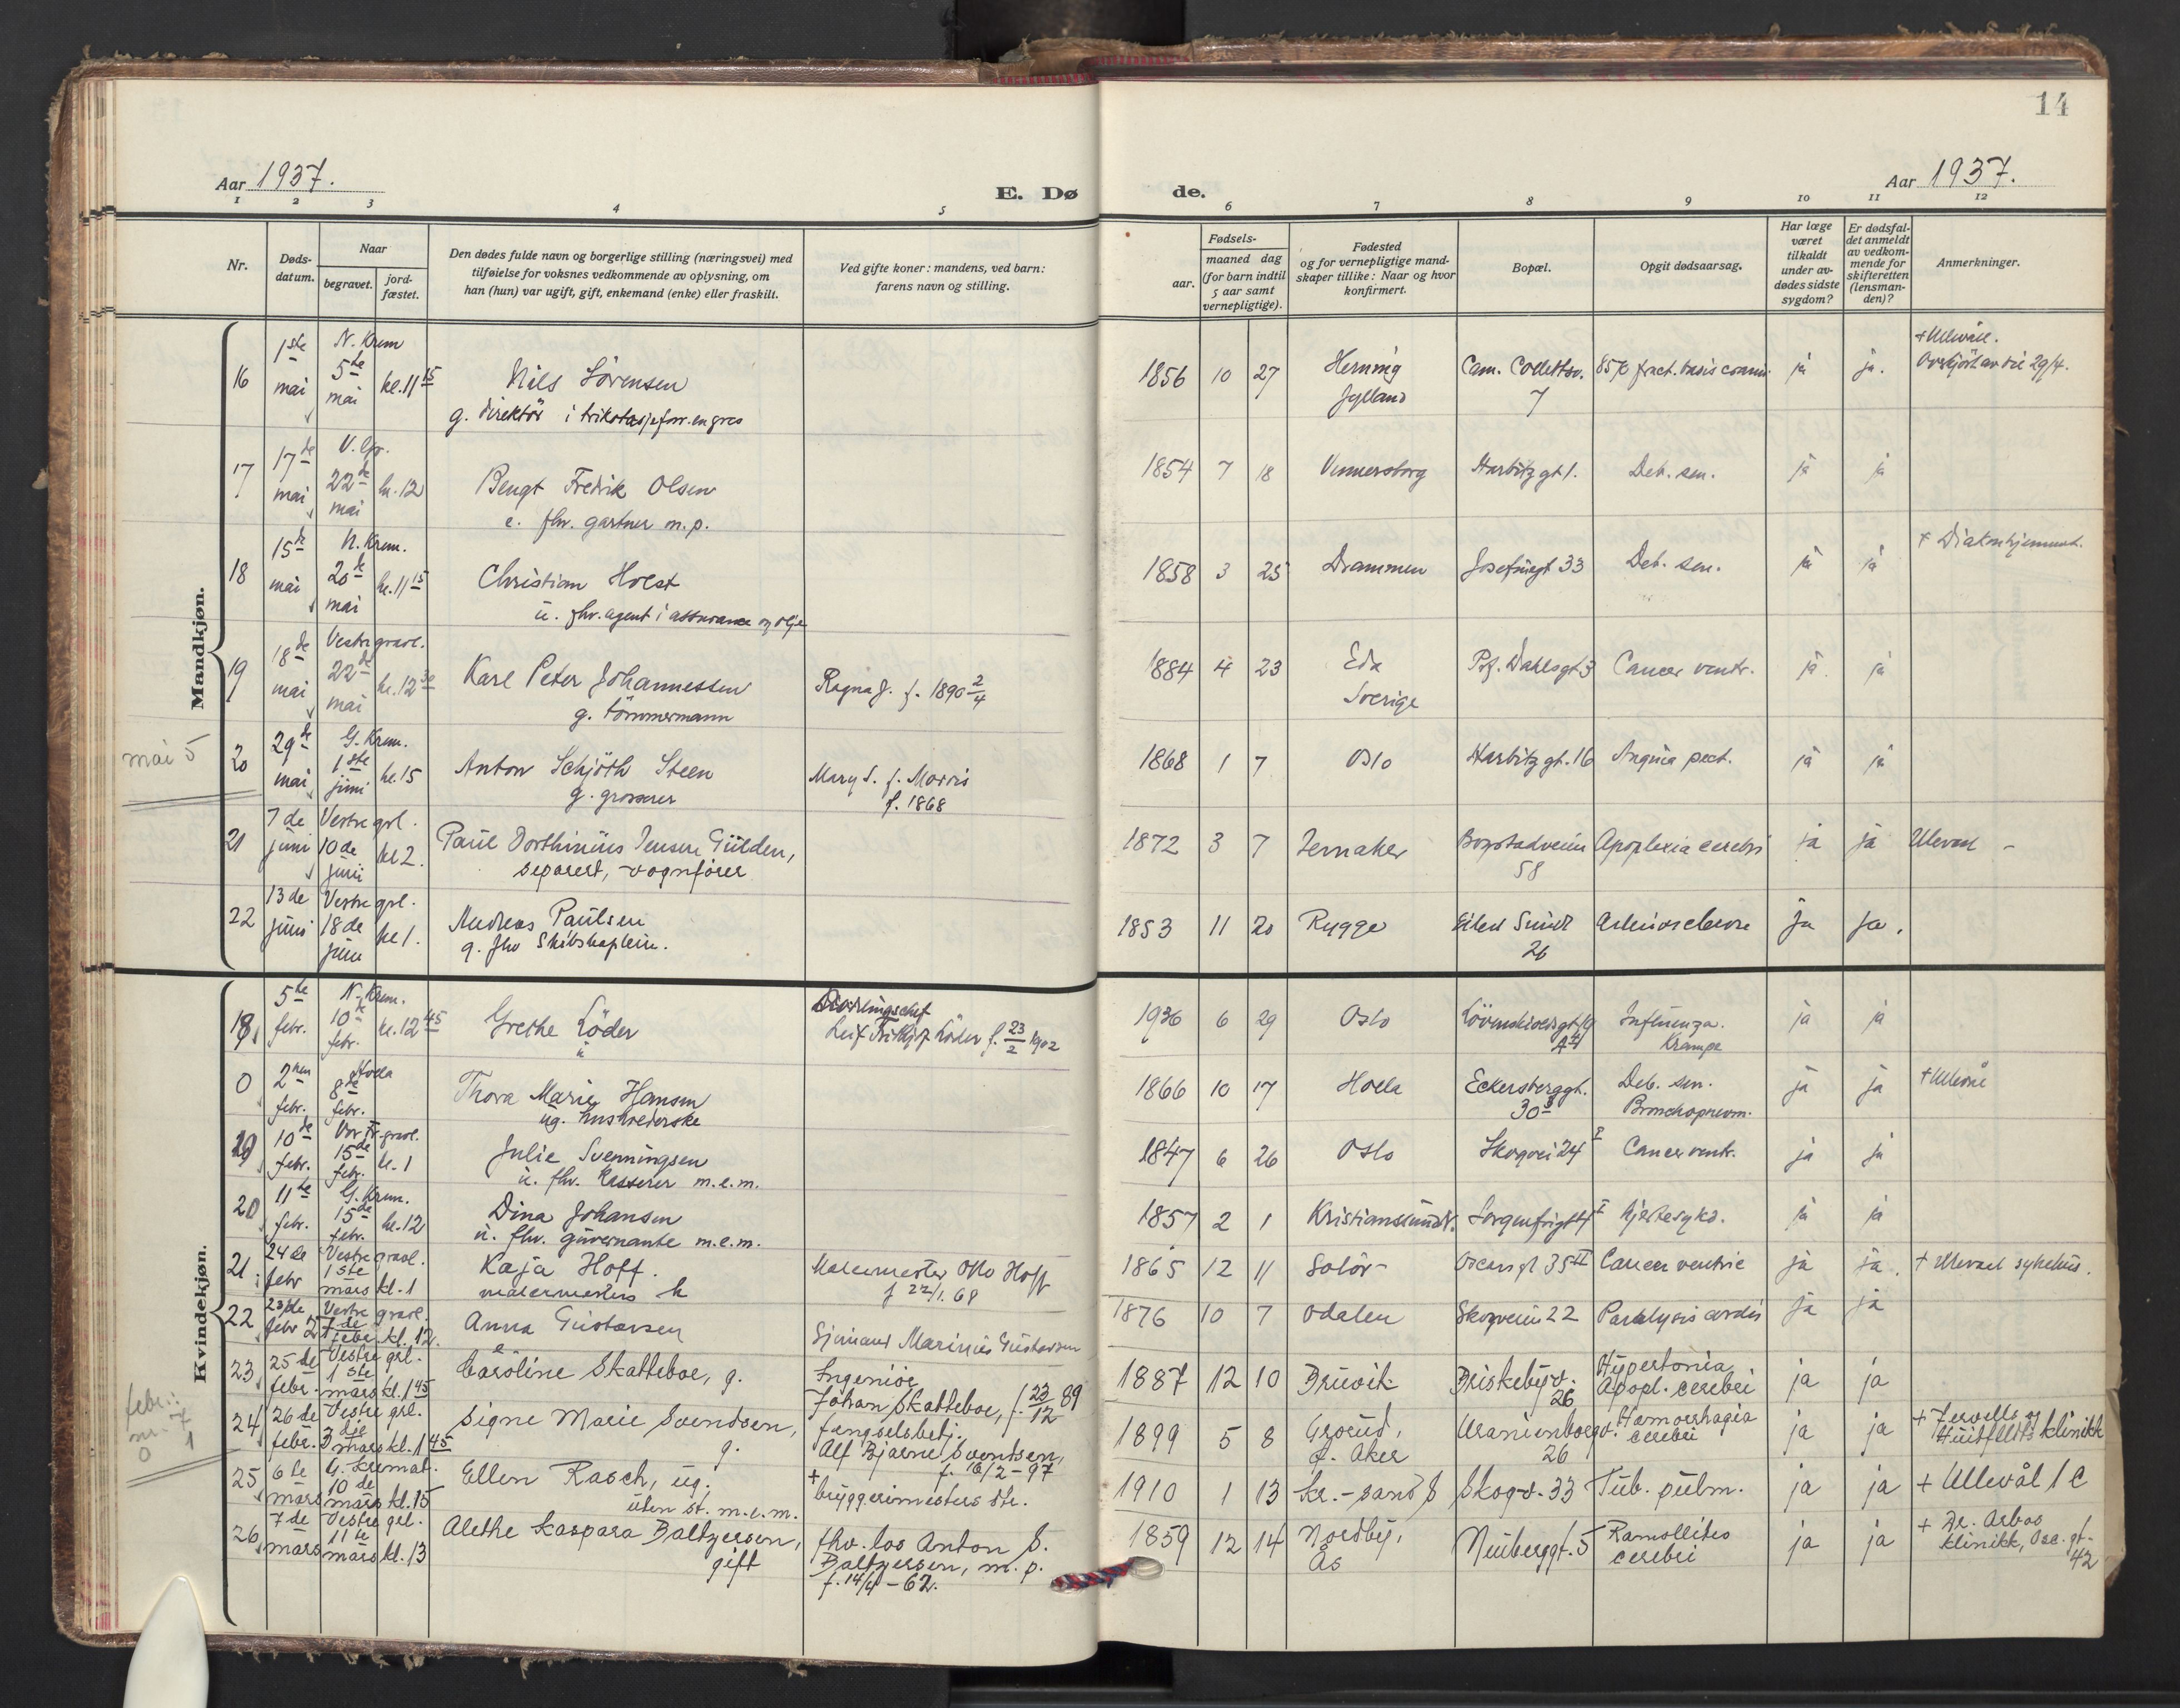 14
Aar 1937.
E. Dø
de.
Aar 1937.
1 2 3 4 5 6 7 8 9 10 11 12
Nr.
Døds-
datum.
Naar
begravet.
jord-
fæstet.
Den dødes fulde navn og borgerlige stilling (næringsvei) med
tilføielse for voksnes vedkommende av oplysning, om
han (hun) var ugift, gift, enkemand (enke) eller fraskilt.
Ved gifte koner: mandens, ved barn:
farens navn og stilling.
Fødsels-
aar.
maaned dag
(for barn indtil
5 aar samt
vernepligtige).
Fødested
og for vernepligtige mand-
skaper tillike: Naar og hvor
konfirmert.
Bopæl.
Opgit dødsaarsag.
Har læge
været
tilkaldt
under av-
dødes sidste
sygdom?
Er dødsfal-
det anmeldt
av vedkom-
mende for
skifteretten
(lensman-
den)?
Anmerkninger.
Mandkjøn.
16 1ste mai N. Krem 5te mai kl. 11 15
Nils Sörensen
g. direktör i trikotasjeforr. en gros
1856 10 27 Herning Jylland Cam. Collettsv. 7 fract. basis cranii ja ja. + Ullevåll.
17 17de mai V. Gr. 22de mai kl. 12
Bengt Fredrik Olsen
e. fhv. gartner m.p.
1854 7 18 Vennersborg Harbitz gt 1. Deb. sen. ja ja
18 15de mai N. Krem. 20de mai kl. 11 15
Christian Holst
u. fhv. agent i assurance og olje
1858 3 25 Drammen Josefinegt 33 Deb. sen. ja ja + Diakonhjemmet.
19 18de mai Vestre gravl. 22de mai kl. 12 30
Karl Peter Johannessen
g. tömmermann
Ragna J. f. 1890 2/4
1884 4 23 Eda Sverige Prof. Dahlsgt 3 Cancer ventr. ja ja
mai 5
20 29de mai G. Krem. 1ste juni kl. 15
Anton Schjöth Steen
g. grosserer
Mary S. f. Morris
f. 1868
1868 1 7 Oslo Harbitz gt. 16 Angina pect. ja ja
21 7de juni Vestre grl. 10de juni kl 2.
Paul Dorthinius Jensen Gulden,
separert, vognfører
1872 3 7 Jernaker Bogstadveien 58 Apoplexia cerebri ja ja Ulevaal
22 13de juni Vestre grl. 18de juni kl 1.
Andreas Paulsen
g. fhv Skibskaptein.
1853 11 20 Rygge Eilert Sundt 26 ja ja.
Kvindekjøn.
18 5te febr. N. Krem. 10de febr. kl. 12 45
Grethe Löder
u
Leif Fritkjof Löder f. 23/2 1902
1936 6 29 Oslo Lövenskioldsgt 19 Influenza. Krampe ja ja
0 2nen febr. Hvela 8de febr.
Thora Marie Hansen
ug. husholderske
1866 10 17 Eckersberggt. 30 Deb. sen. Bronchopneum. ja ja + Ullevål
19 10de febr. Vor Fr. gravl. 15de febr. kl. 1
Julie Svenningsen
u. fhv. kasserer m.e.m.
1847 6 26 Oslo Skogvei 24 I Cancer ventr. ja ja
20 11te febr. G. Krem. 15de febr. kl. 12
Dina Johansen
u. fhv. guvernante m.e.m.
1857 2 1 Kristianssund N. Sorgenfrigt 4 I hjertesykd. ja ja
21 24de febr Vestre gravl. 1ste mars kl. 1
Kaja Hoff.
malermesters h
Malermester Otto Hoff
1865 12 11 Solör Oscarsgt 35 II Cancer ventric ja ja. + Ulevaal sykehus.
22 23de febr Vestre gravl. 27de febr. kl. 12.
Anna Gustavsen
e
Sjömand Marinius Gustavsen
1876 10 7 Odalen Skogveien 22 Paralysis cordis ja ja
23 25de febr. Vestre grl. 1ste mars kl. 1 45
Caroline Skatteboe, g.
Ingeniör
Johan Skatteboe, f. 23/12 89
1887 12 10 Bruvik Briskebyv. 26 Hypertonia Apopl. cerebri ja ja
febr.:
m. 7
0 1
24 26de febr. Vestre grl. 3dje mars kl. 1 45
Signe Marie Svendsen,
g.
fængselsbetj.
Alf Bjarne Svendsen,
f. 16/2 - 97
1899 5 8 Grorud, Ö. Aker Uranienborgv. 26 Hæmorrhagia cerebri ja ja klinikk
25 6te mars G. kremat. 10de mars kl. 15
Ellen Rasch, ug.
uten st. m.e.m.
+ bryggerimesters dtr.
1910 1 13 Kr.-sand S Skogv. 33 Tub. pulm. ja ja + Ullevål 1 C
26 7de mars Vestre grl. 11te mars kl. 13
Alethe Kaspara Baltzersen,
gift
fhv. los Anton S.
Baltzersen, m.p.
f. 14/4 - 62.
1859 12 14 Nordby, Ås Neuberggt. 5 Ramollitio cerebri ja ja + Dr. Arbos klinikk, Osc. gt. 42